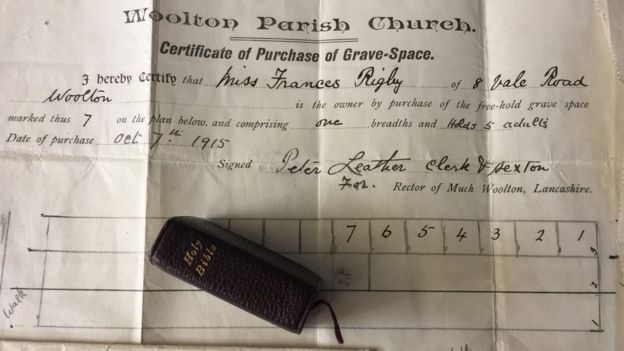 Woolton Parish Church.
Certificate of Purchase of Grave-Space.
I hereby Certify that Miss Frances Rigby of 8 Vale Road
Woolton is the owner by purchase of the free-hold grave space
marked thus 7 on the plan below, and comprising one breadths and Holds 5 adults
Date of purchase Oct 7th 1915
Signed Peter Leather Clerk & Sexton
For. Rector of Much Woolton, Lancashire.
7 6 5 4 3 2 1
3
2
1
Walk
Holy
Bible